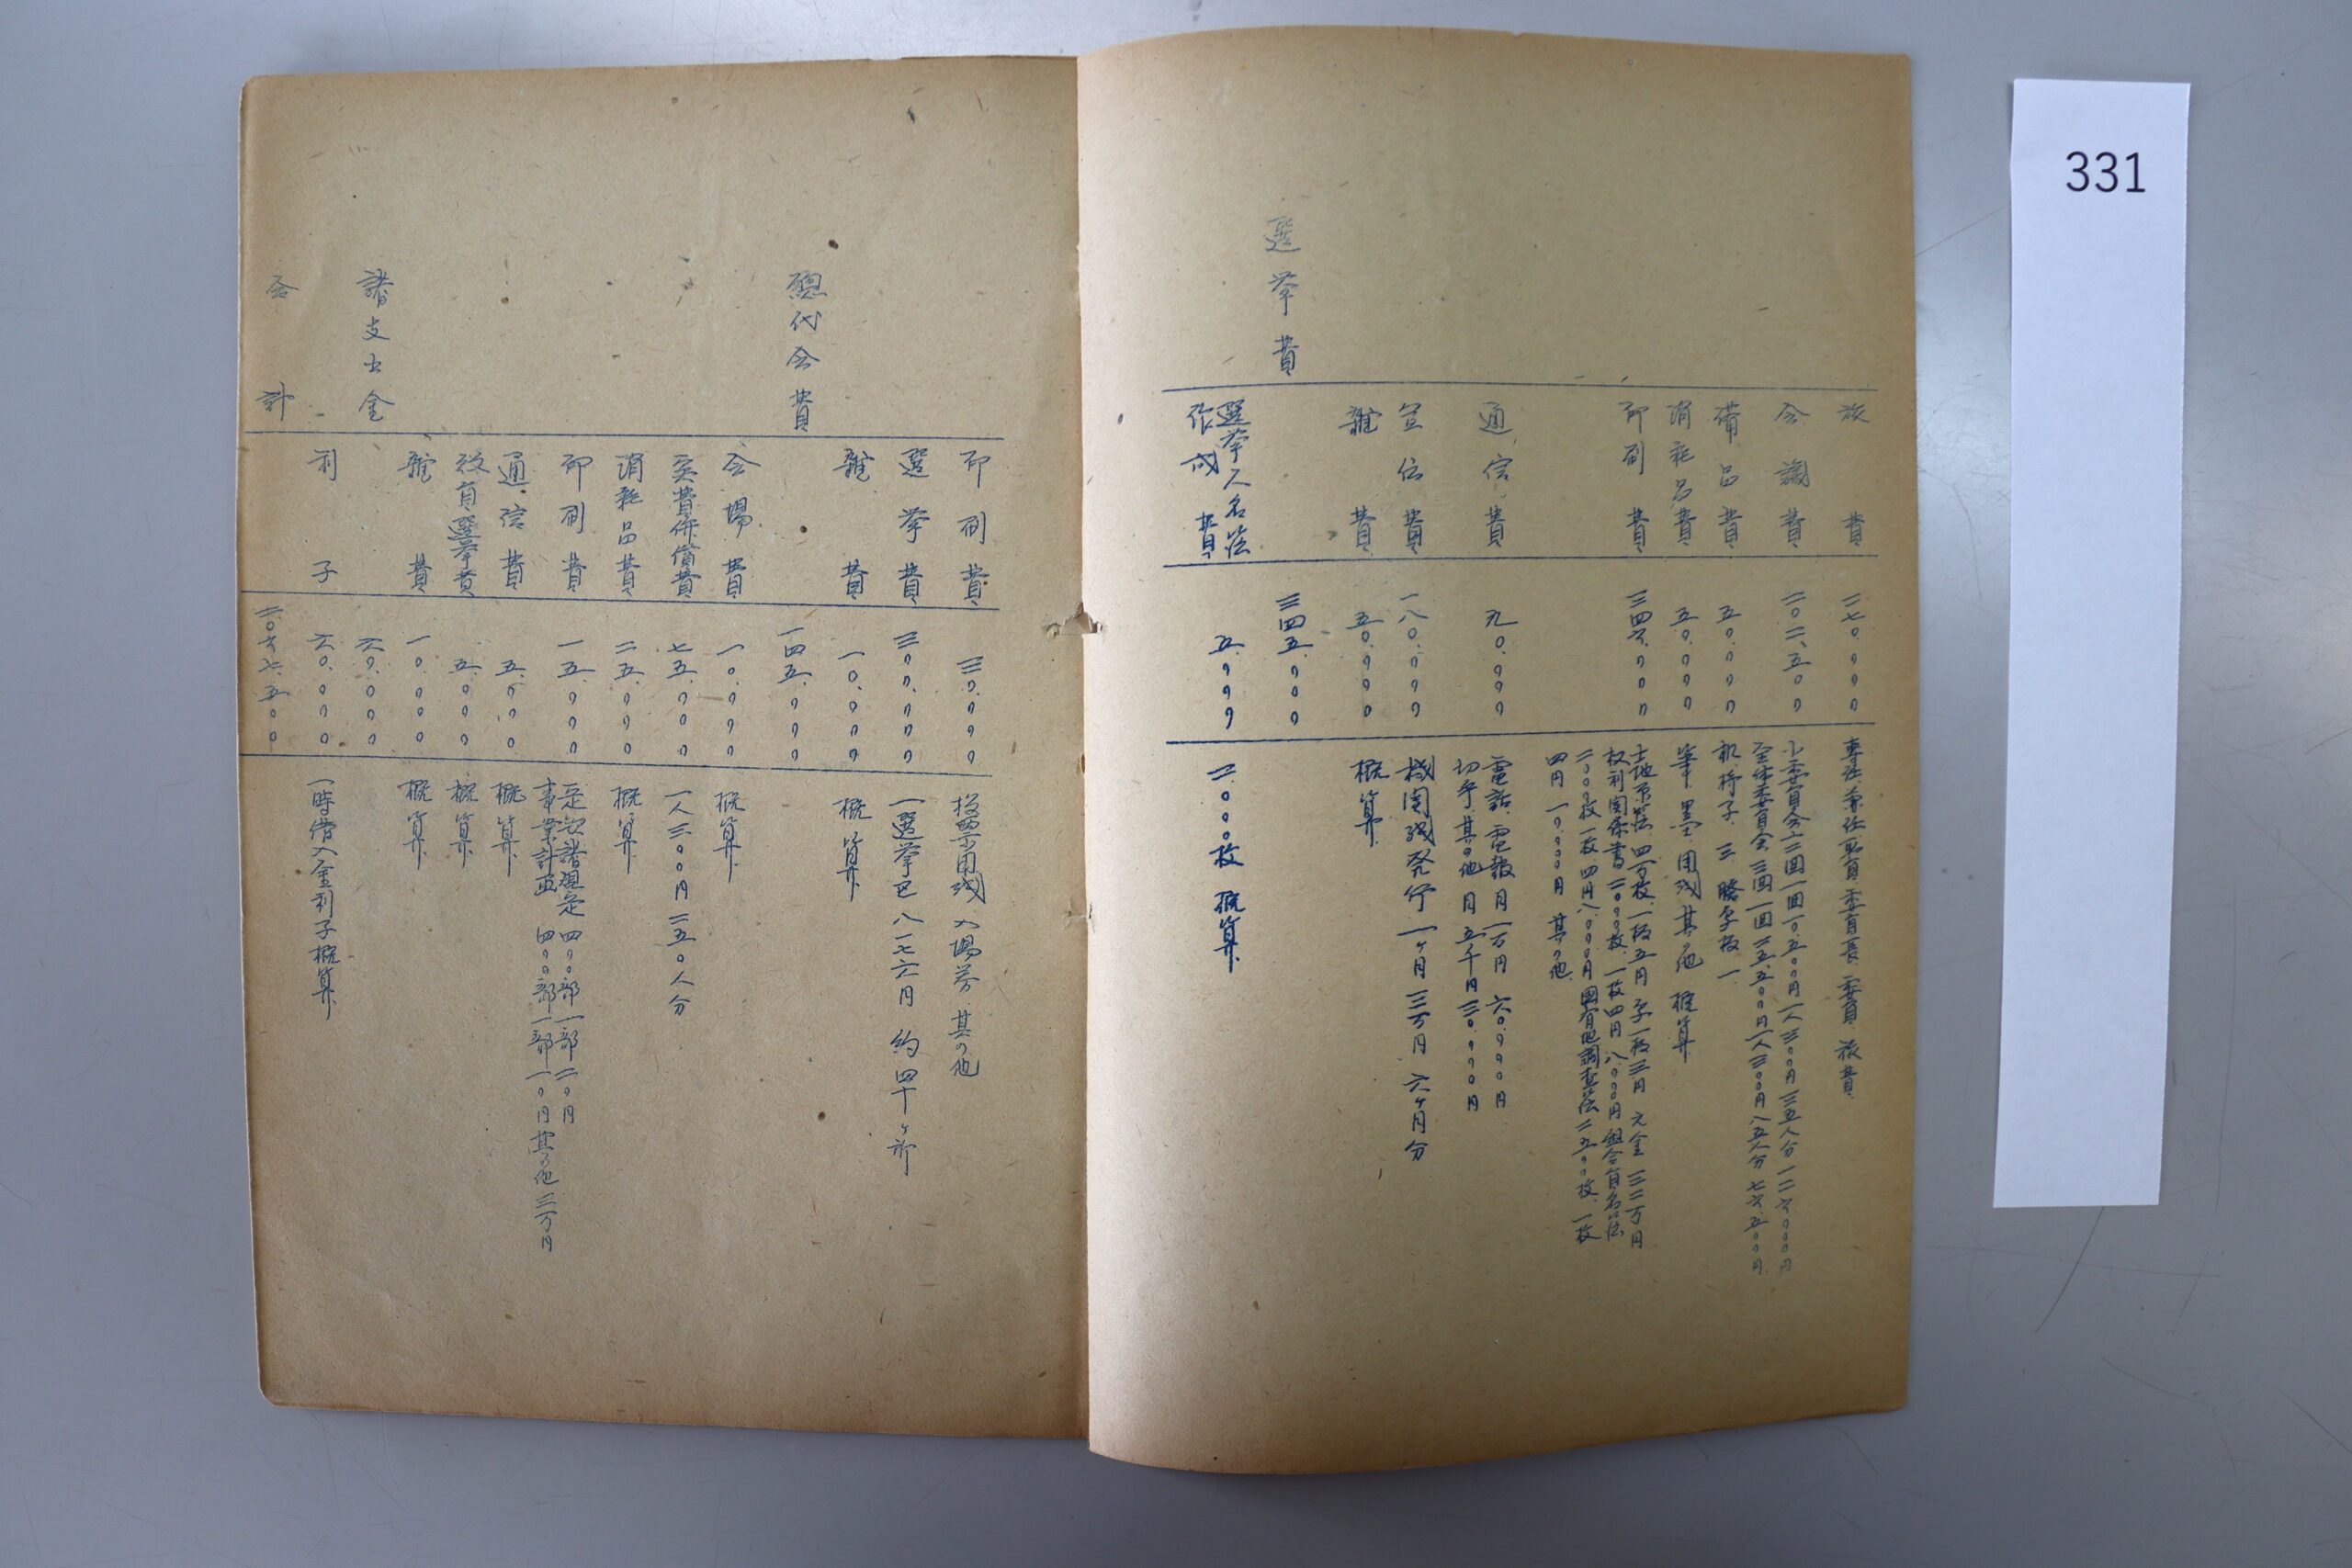 331
旅費 二七〇、〇〇〇 専任兼任職員委員長、委員、旅費
会議費 二〇二、五〇〇 小委員会十二回一回一〇、五〇〇円一人三〇〇円三五人分一二六、〇〇〇円
全体委員会、三回一回二五、五〇〇円一人三〇〇円八五人分七六、五〇〇円
備品費 五〇、〇〇〇 机椅子、三 謄写板一
消耗品費 五〇、〇〇〇 筆墨、用紙其ノ他 概算
印刷費 三四六、〇〇〇 土地原簿四万枚、一枚五円 写一枚三円 元金三二万円
権利関係書二〇〇〇枚、一枚四円八、〇〇〇円組合員名簿
二〇〇〇枚一枚四円八、〇〇〇円国有地調査簿二五〇〇枚、一枚
四円一〇、〇〇〇円其ノ他
通信費 九〇、〇〇〇 電話、電報月一万円 六〇、〇〇〇円
切手其ノ他月五千円三〇、〇〇〇円
宣伝費 一八〇、〇〇〇 機関紙発行一ヶ月三万円六ヶ月分
雑費 五〇、〇〇〇 概算
選挙費 三四五、〇〇〇
選挙人名簿
作成費 五、〇〇〇 二、〇〇〇枚 概算
印刷費 三〇、〇〇〇 投票用紙入場券、其ノ他
選挙費 三〇〇、〇〇〇 一選挙区八一七六円 約四十ヶ所
雑費 一〇、〇〇〇 概算
總代会費 一四五、〇〇〇
会場費 一〇、〇〇〇 概算
実費併償費 七五、〇〇〇 一人三〇〇円二五〇人分
消耗品費 二五、〇〇〇 概算
印刷費 一五、〇〇〇 定款諸規定 四〇〇部一部二〇円
事業計画 四〇〇部一部一〇円其ノ他三万円
通信費 五、〇〇〇 概算
役員選挙費 五、〇〇〇 概算
雑費 一〇、〇〇〇 概算
諸支出金 六〇、〇〇〇
利子 六〇、〇〇〇 一時借入金利子概算
合計 二、〇六七、五〇〇